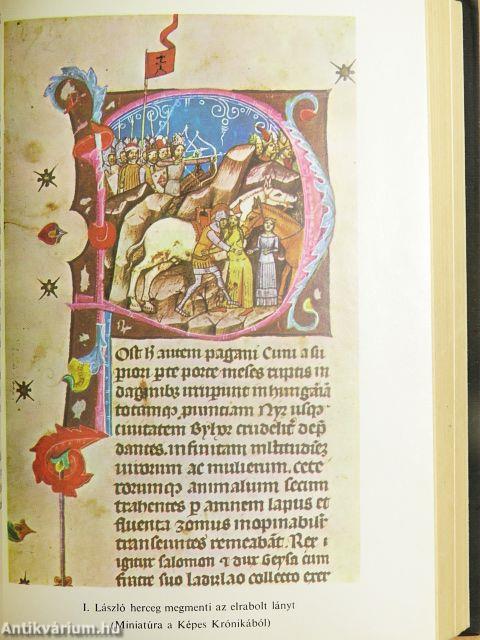 Ost h autem pagani Cuni a su
piori pte porte meses ruptis in
daginibus irrupunt in hungaria
totamq; puinciam Nyr usq;
civitatem Byhor crudelit depd
dantes. infinitam multitudinez
virorum ac mulierum. cete
rorumq; animalium secum
trahentes p amnem lapus et
fluenta zomus inopinabilr
transeuntes remeabant. Rex i
gitur salomon et dux Geysa cum
fratre suo ladizlao collecto exer
I. László herceg megmenti az elrabolt lányt
(Miniatúra a Képes Krónikából)
Antikvárium.hu
Antikvárium.hu